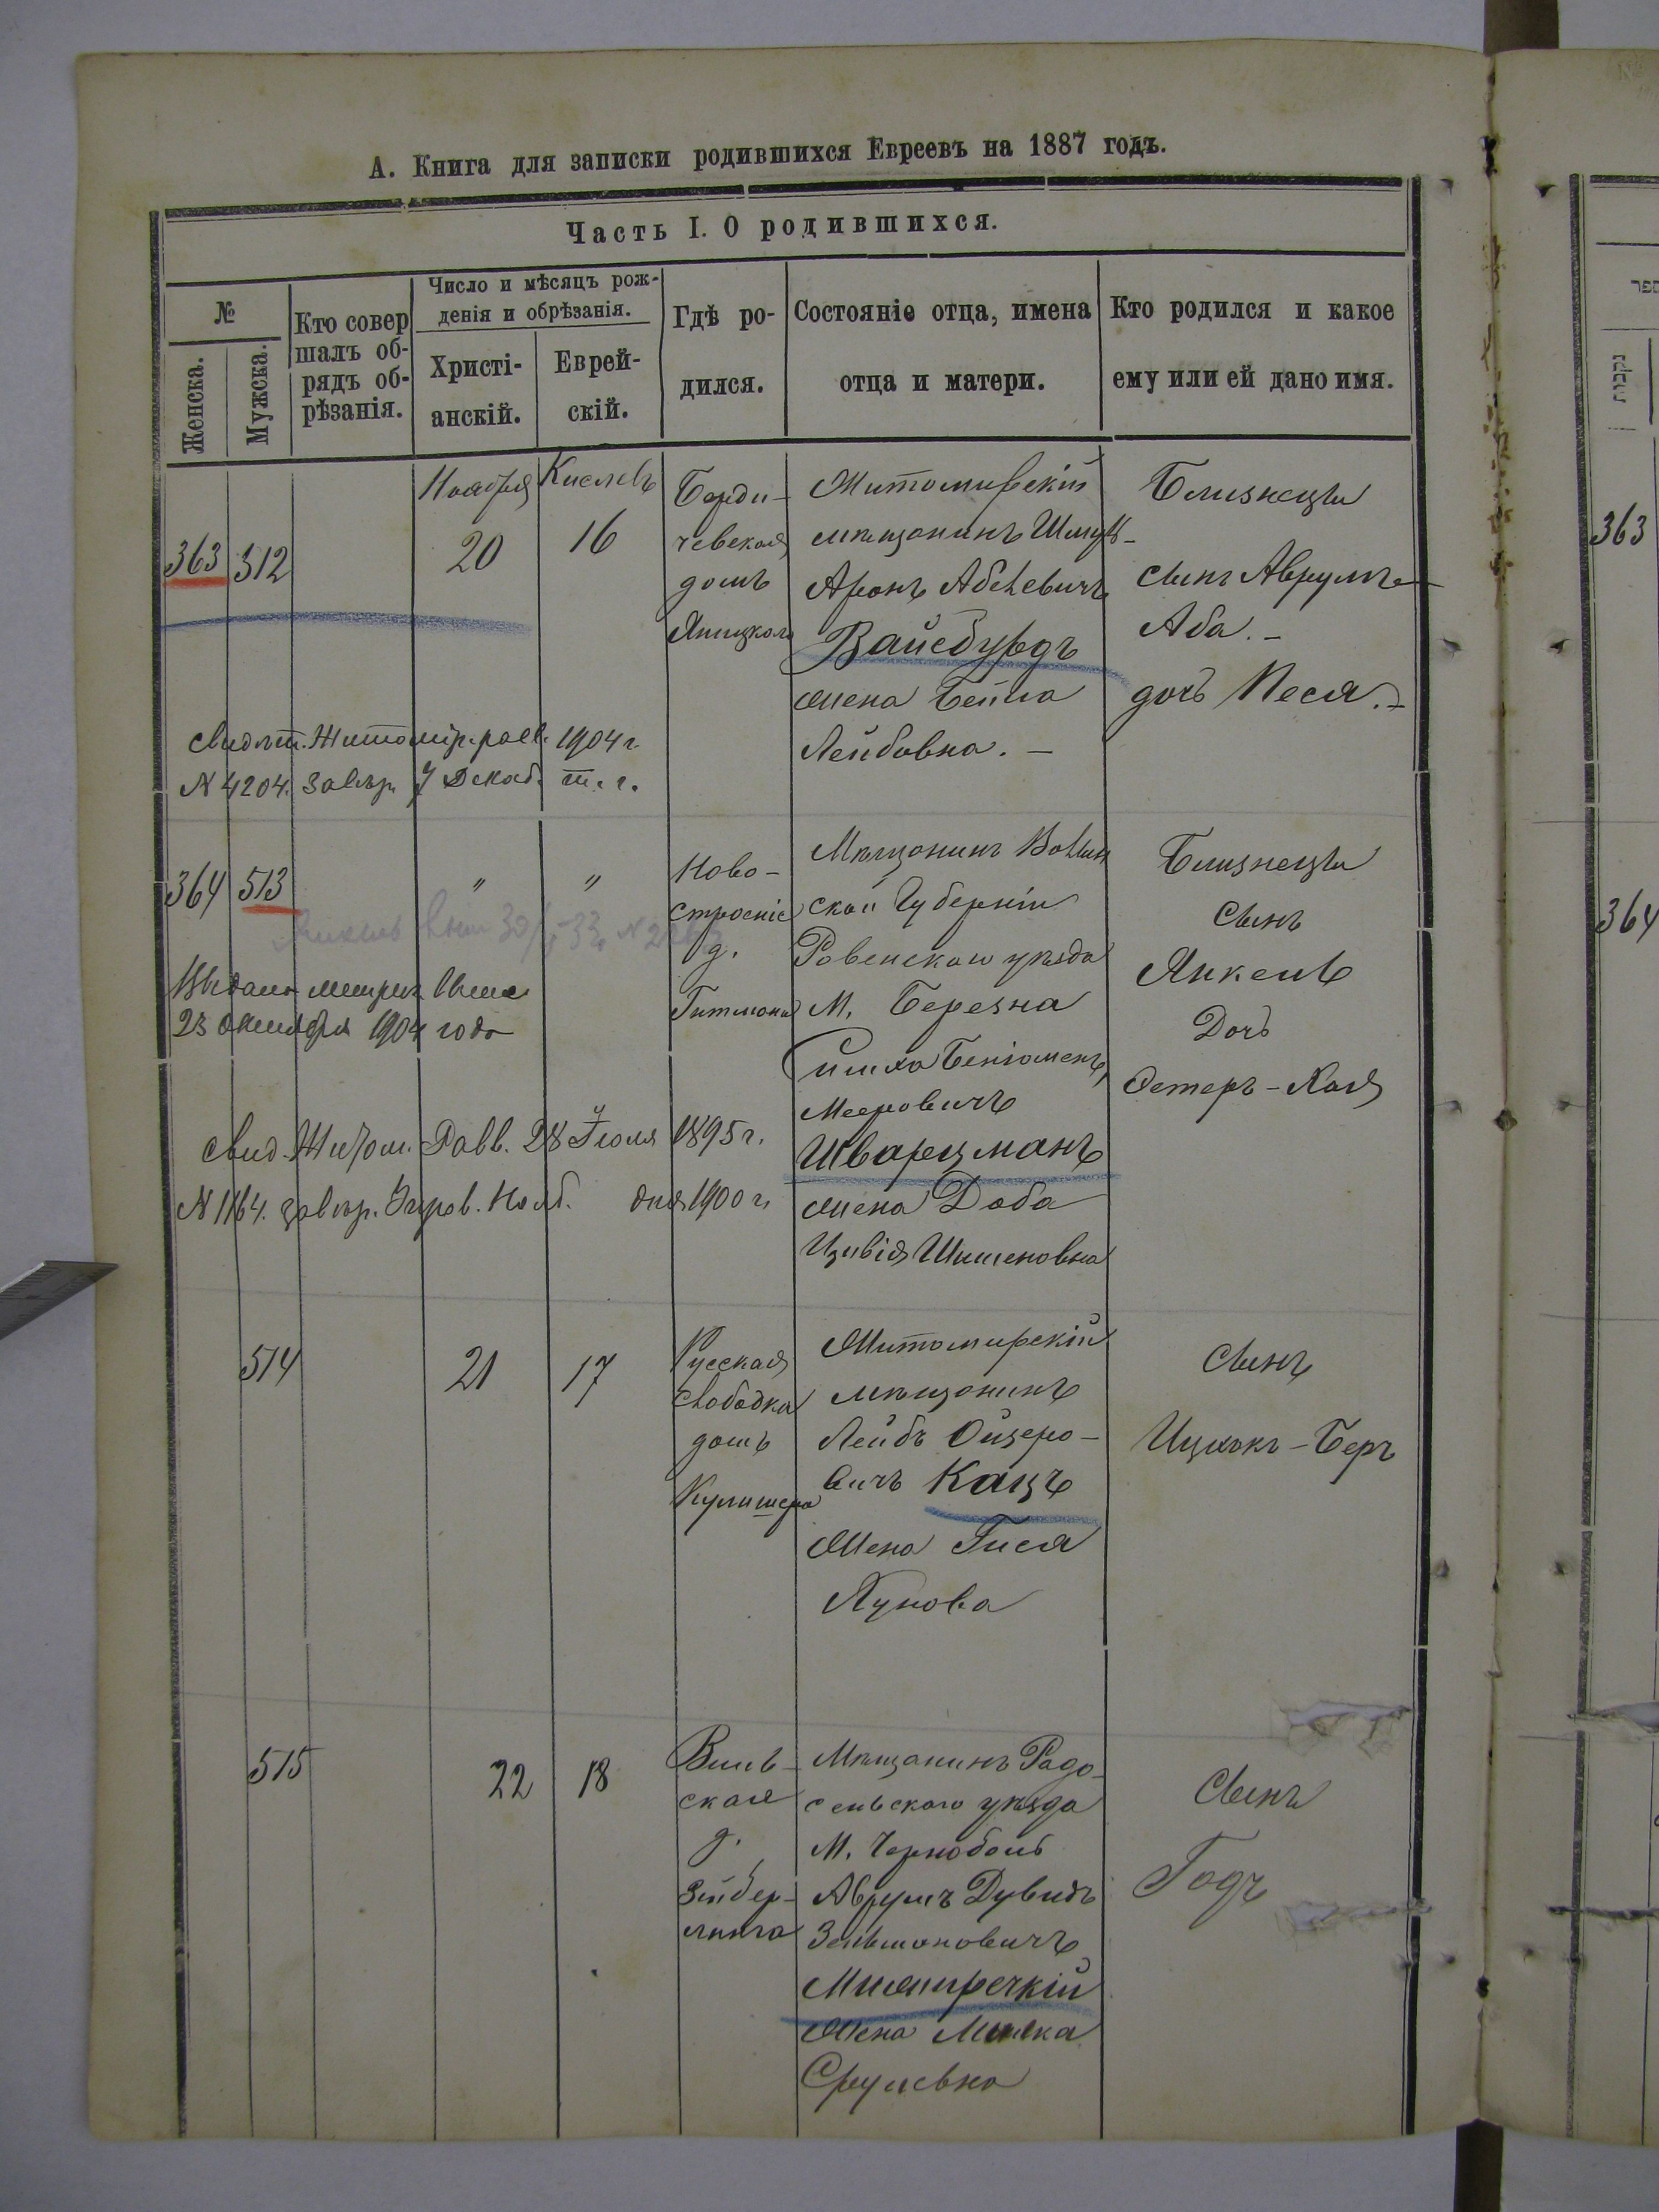 А. Книга для записки родившихся Евреевъ на 1887 годъ.
Часть I. О родившихся.
№
Женска.
Мужска.
Кто совер
шалъ об-
рядъ об-
рѣзанія.
Число и мѣсяцъ рож-
денія и обрѣзанія.
Христі-
анскій.
Еврей-
скій.
Гдѣ ро-
дился.
Состояніе отца, имена
отца и матери.
Кто родился и какое
ему или ей дано имя.
363
512
Ноября
20
Кислевъ
16
Берди-
чевская
домъ
Житомирскій
мѣщанинъ Шмуль-
Аронъ Абелевичъ
Вайсбурдъ
жена Бейла
Лейбовна. –
Близнецы
сынъ Аврумъ-
Аба. –
дочь Песя. –
Свидѣт. Житомір. равв. 1904 г.
N 4204. завѣр. 7 Декаб. т. г.
364
513
"
"
Ново-
строеніе
д.
Гитмана
Мѣщанинъ Волын
ской Губерніи
Ровенскаго уѣзда
М. Березна
Беніоменъ
Мееровичъ
Шварцманъ
жена Доба
Цивія Шименовна
Близнецы
Сынъ
Янкель
Дочь
Естеръ-Хая
Выдана метрич. выпис
23 октября 1904 года
Свид. Житом. Равв. 28 Іюля 1895 г.
N 1164. завѣр. Нояб. дня 1900 г.
514
21
17
Русская
слободка
домъ
Кулишера
Житомирскій
мѣщанинъ
Лейбъ Ойзеро-
вичъ Кацъ
Жена Гися
Хунова
Сынъ
Ицхокъ-Беръ
515
22
18
Виль-
ская
д.
Зильбер-
линга
Мѣщанинъ Радо-
сельскаго уѣзда
М. Чернобыль
Аврумъ Дувидъ
Зельмановичъ
Мижиречкій
Жена Малка
Срулевна
Сынъ
Годъ
363
364
נקבות